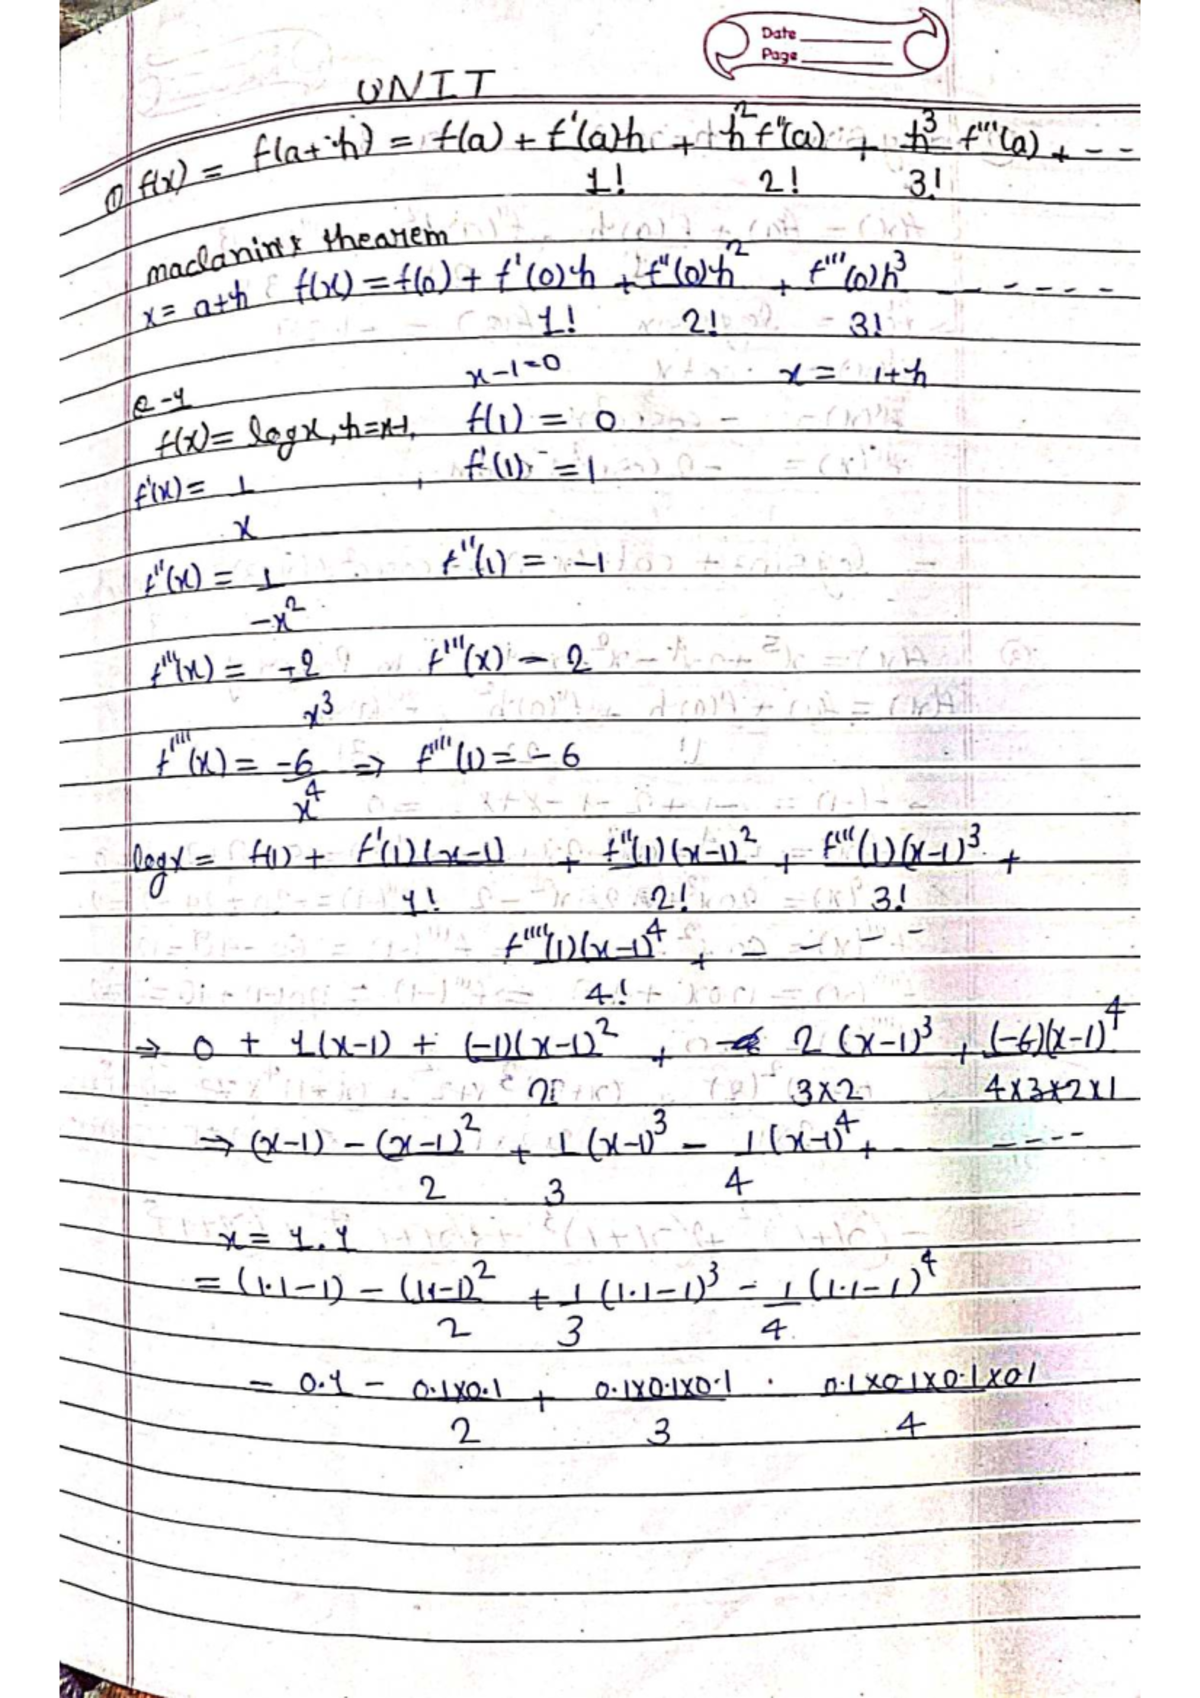 Date
Page
UNIT
① f(x) = f(a+h) = f(a) + f'(a)h/1! + h²f''(a)/2! + h³/3! f'''(a) + --
maclanin's thearem
x = a+h f(x) = f(0) + f'(0)h/1! + f''(0)h²/2! + f'''(0)h³/3! ------
x-1=0 x = 1+h
e-1
f(x) = logx, h=x-1, f(1) = 0
f'(x) = 1/x , f'(1) = 1
f''(x) = 1/-x² f''(1) = -1
f'''(x) = +2/x³ f'''(x) - 2
f''''(x) = -6/x⁴ ⇒ f''''(1) = -6
logx = f(1) + f'(1)(x-1)/1! + f''(1)(x-1)²/2! + f'''(1)(x-1)³/3! +
f''''(1)(x-1)⁴/4! + - - - -
⇒ 0 + 1(x-1) + (-1)(x-1)²/2! + 2(x-1)³/3x2 + (-6)(x-1)⁴/4x3x2x1
⇒ (x-1) - (x-1)²/2 + 1/3 (x-1)³ - 1/4 (x-1)⁴ + - ----
x = 1.1
= (1.1-1) - (1.1-1)²/2 + 1/3 (1.1-1)³ - 1/4 (1.1-1)⁴
= 0.1 - 0.1x0.1/2 + 0.1x0.1x0.1/3 . 0.1x0.1x0.1x01/4